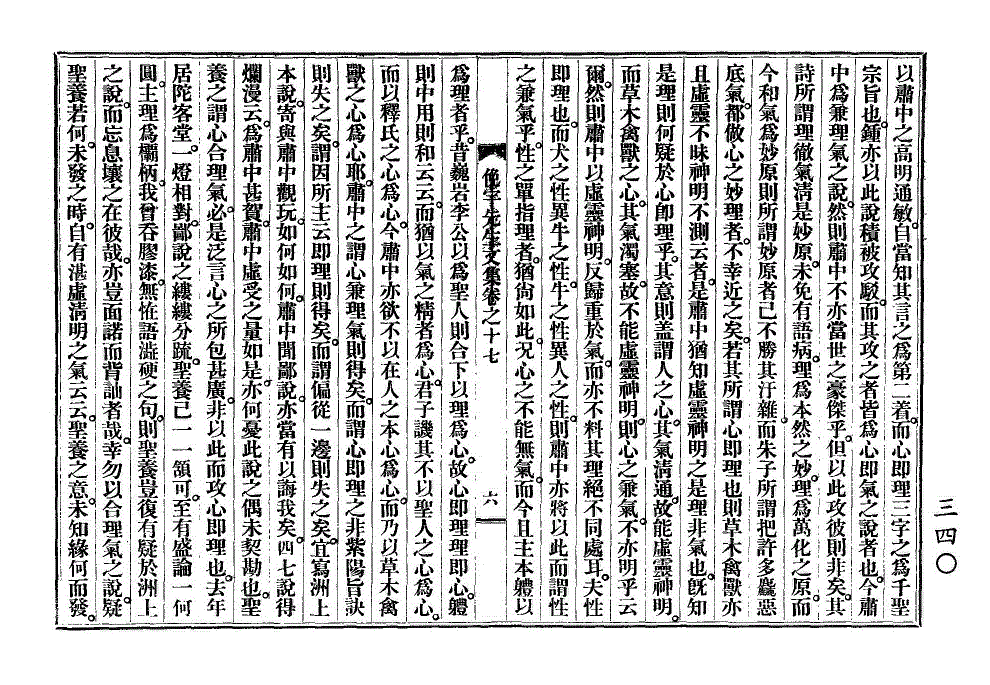 以肅中之高明通敏。自當知其言之爲第二着。而心即理三字之爲千聖
宗旨也。鍾亦以此說積被攻駁。而其攻之者皆爲心即氣之說者也。今肅
中爲兼理氣之說。然則肅中不亦當世之豪傑乎。但以此攻彼則非矣。其
詩所謂理徹氣淸是妙原。未免有語病。理爲本然之妙。理爲萬化之原。而
今和氣爲妙原則所謂妙原者已不勝其汙雜。而朱子所謂把許多麤惡
底氣。都做心之妙理者。不幸近之矣。若其所謂心即理也則草木禽獸亦
且虛靈不昧神明不測云者。是肅中猶知虛靈神明之是理非氣也。旣知
是理則何疑於心即理乎。其意則盖謂人之心。其氣淸通。故能虛靈神明。
而草木禽獸之心。其氣濁塞。故不能虛靈神明。則心之兼氣。不亦明乎云
爾。然則肅中以虛靈神明。反歸重於氣。而亦不料其理絕不同處耳。夫性
即理也。而犬之性異牛之性。牛之性異人之性。則肅中亦將以此而謂性
之兼氣乎。性之單指理者。猶尙如此。况心之不能無氣。而今且主本體以
俛宇先生文集卷之十七
六
爲理者乎。昔巍岩李公以爲聖人則合下以理爲心。故心即理理即心。體
則中用則和云云。而猶以氣之精者爲心。君子譏其不以聖人之心爲心。
而以釋氏之心爲心。今肅中亦欲不以在人之本心爲心。而乃以草木禽
獸之心爲心耶。肅中之謂心兼理氣則得矣。而謂心即理之非紫陽旨訣
則失之矣。謂因所主云即理則得矣。而謂偏從一邊則失之矣。宜寫洲上
本說。寄與肅中觀玩。如何如何。肅中聞鄙說。亦當有以誨我矣。四七說得
爛漫云。爲肅中甚賀。肅中虛受之量如是。亦何憂此說之偶未契勘也。聖
養之謂心合理氣。必是泛言心之所包甚廣。非以此而攻心即理也。去年
居陀客堂。一燈相對。鄙說之縷縷分疏。聖養已一一頷可。至有盛論一何
圓。主理爲欛柄。我曾吞膠漆。無恠語澁硬之句。則聖養豈復有疑於洲上
之說。而忘息壤之在彼哉。亦豈面諾而背訕者哉。幸勿以合理氣之說。疑
聖養若何。未發之時。自有湛虛淸明之氣云云。聖養之意。未知緣何而發。
三四〇